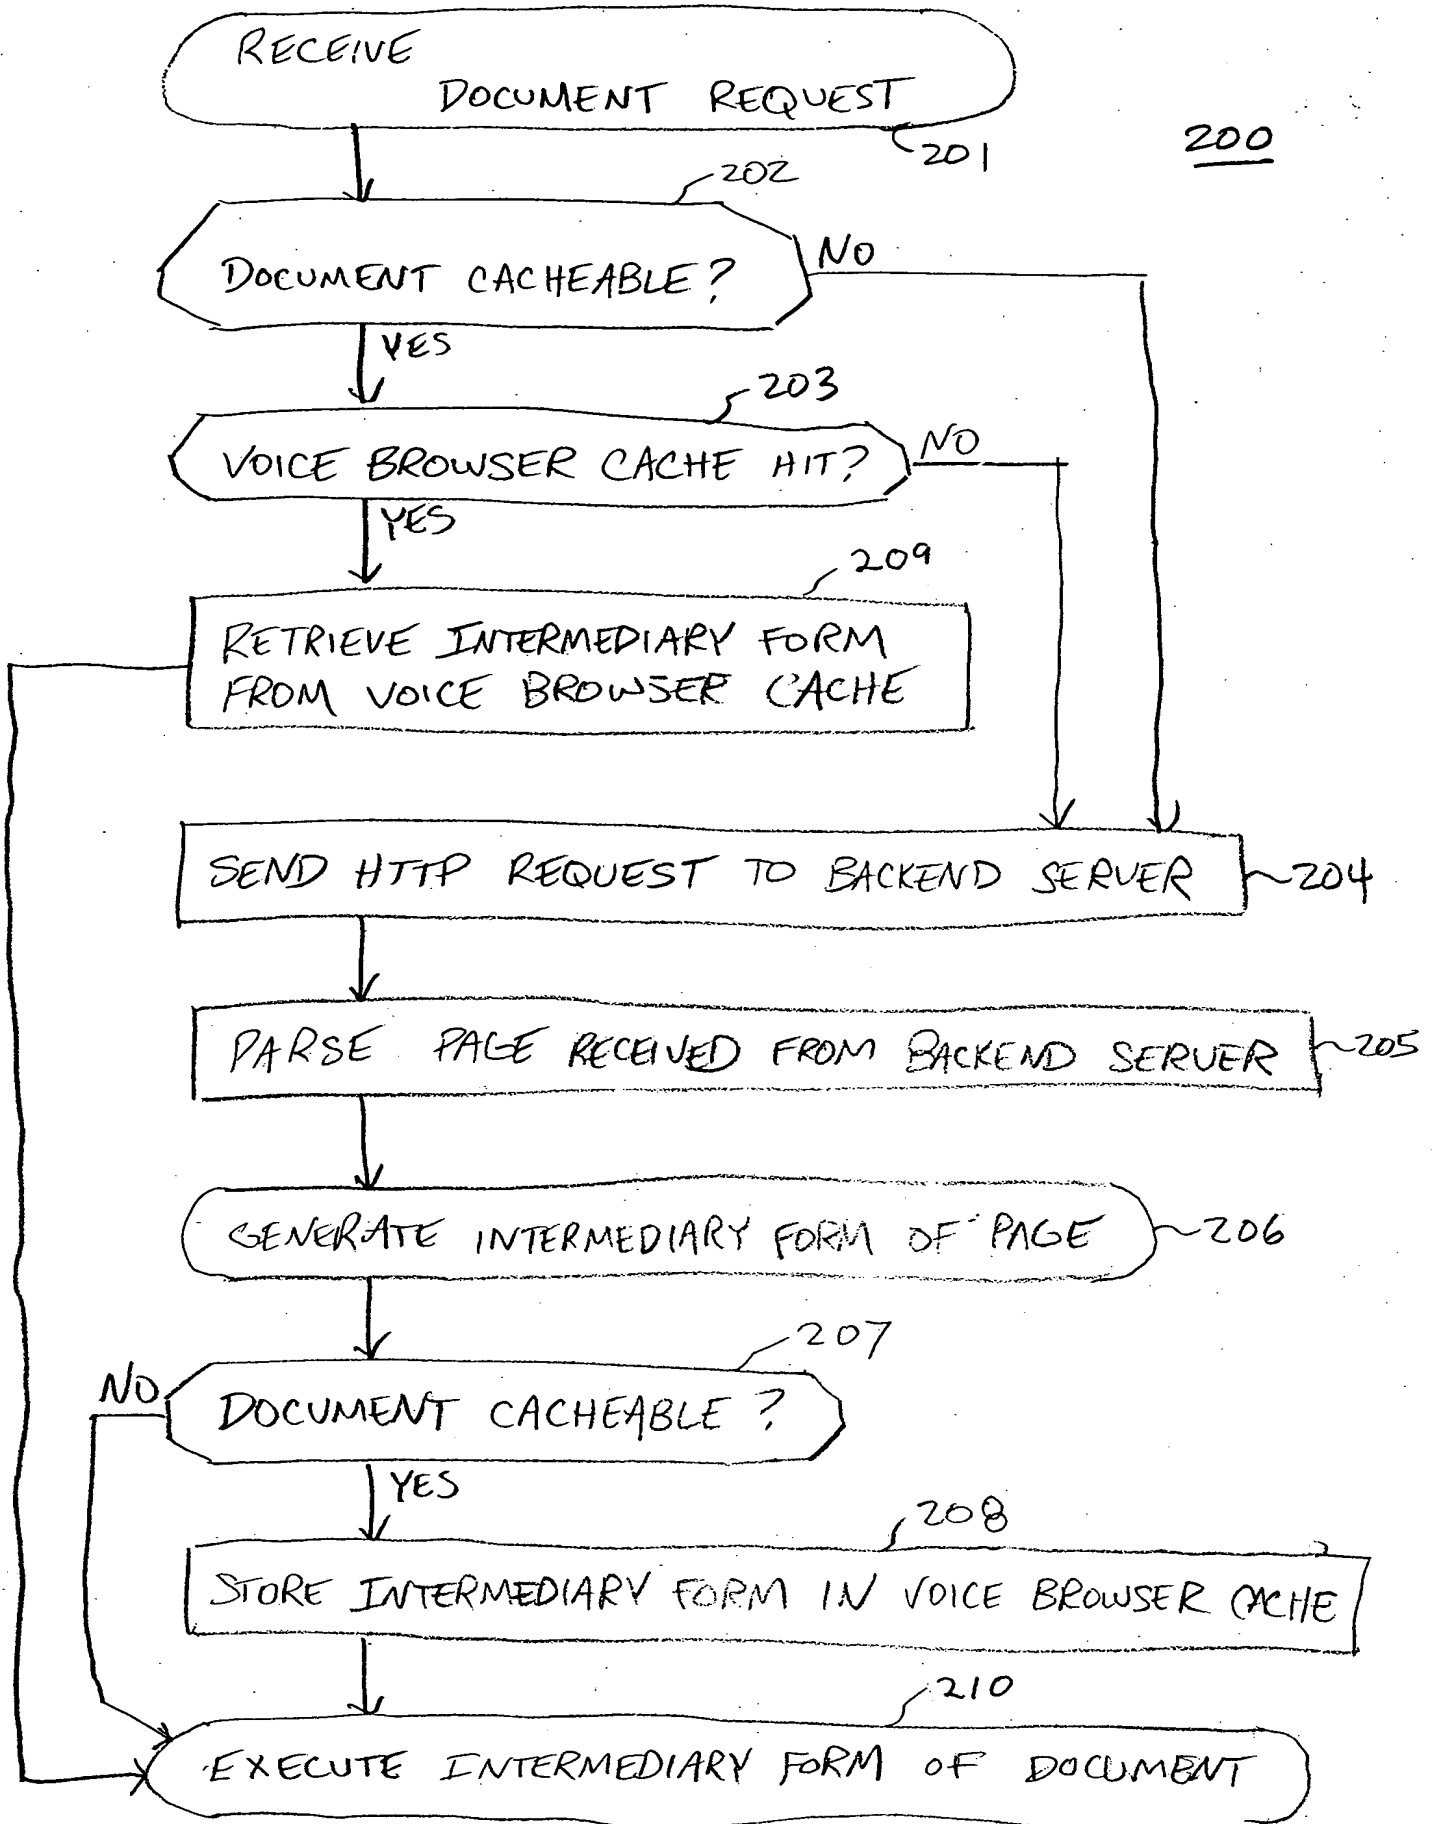 RECEIVE
DOCUMENT REQUEST
201
200
202
DOCUMENT CACHEABLE?
NO
YES
203
VOICE BROWSER CACHE HIT?
NO
YES
209
RETRIEVE INTERMEDIARY FORM
FROM VOICE BROWSER CACHE
SEND HTTP REQUEST TO BACKEND SERVER
204
PARSE PAGE RECEIVED FROM BACKEND SERVER
205
GENERATE INTERMEDIARY FORM OF PAGE
206
207
NO
DOCUMENT CACHEABLE?
YES
208
STORE INTERMEDIARY FORM IN VOICE BROWSER CACHE
210
EXECUTE INTERMEDIARY FORM OF DOCUMENT